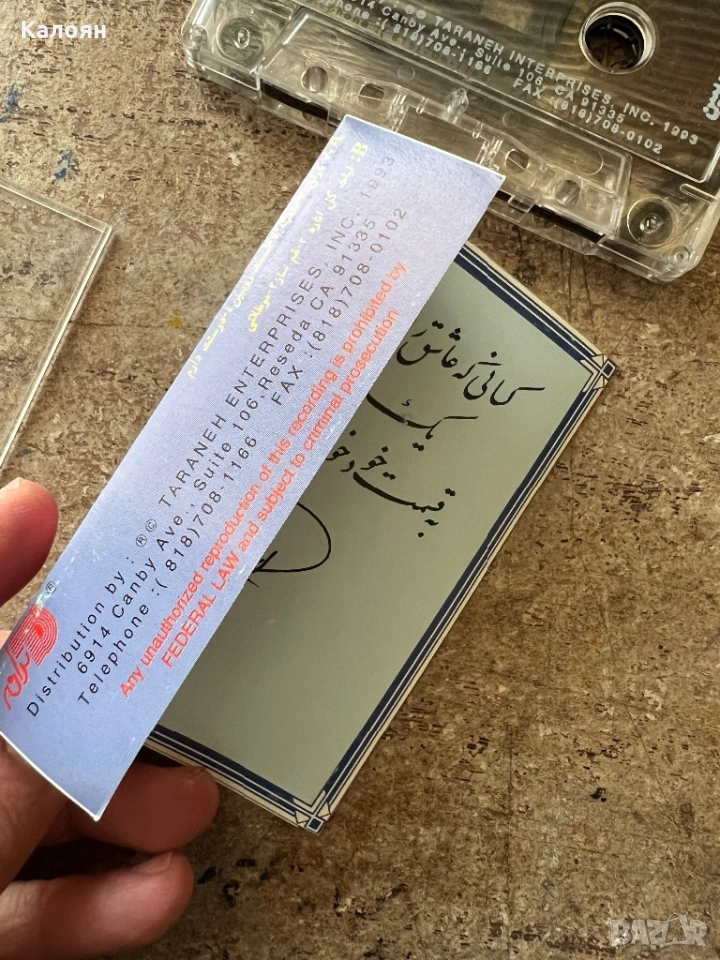 Калоян
℗© TARANEH ENTERPRISES, INC. 1993
6914 Canby Ave., Suite 106, CA 91335
Telephone :(818)708-1166 FAX :(818)708-0102
Distribution by : ®© TARANEH ENTERPRISES, INC. 1993
6914 Canby Ave., Suite 106,Reseda CA 91335
Telephone :( 818)708-1166 FAX :(818)708-0102
Any unauthorized reproduction of this recording is prohibited by
FEDERAL LAW and subject to criminal prosecution
کسانی که عاشق
یک
به قیمت خو
BAZAR